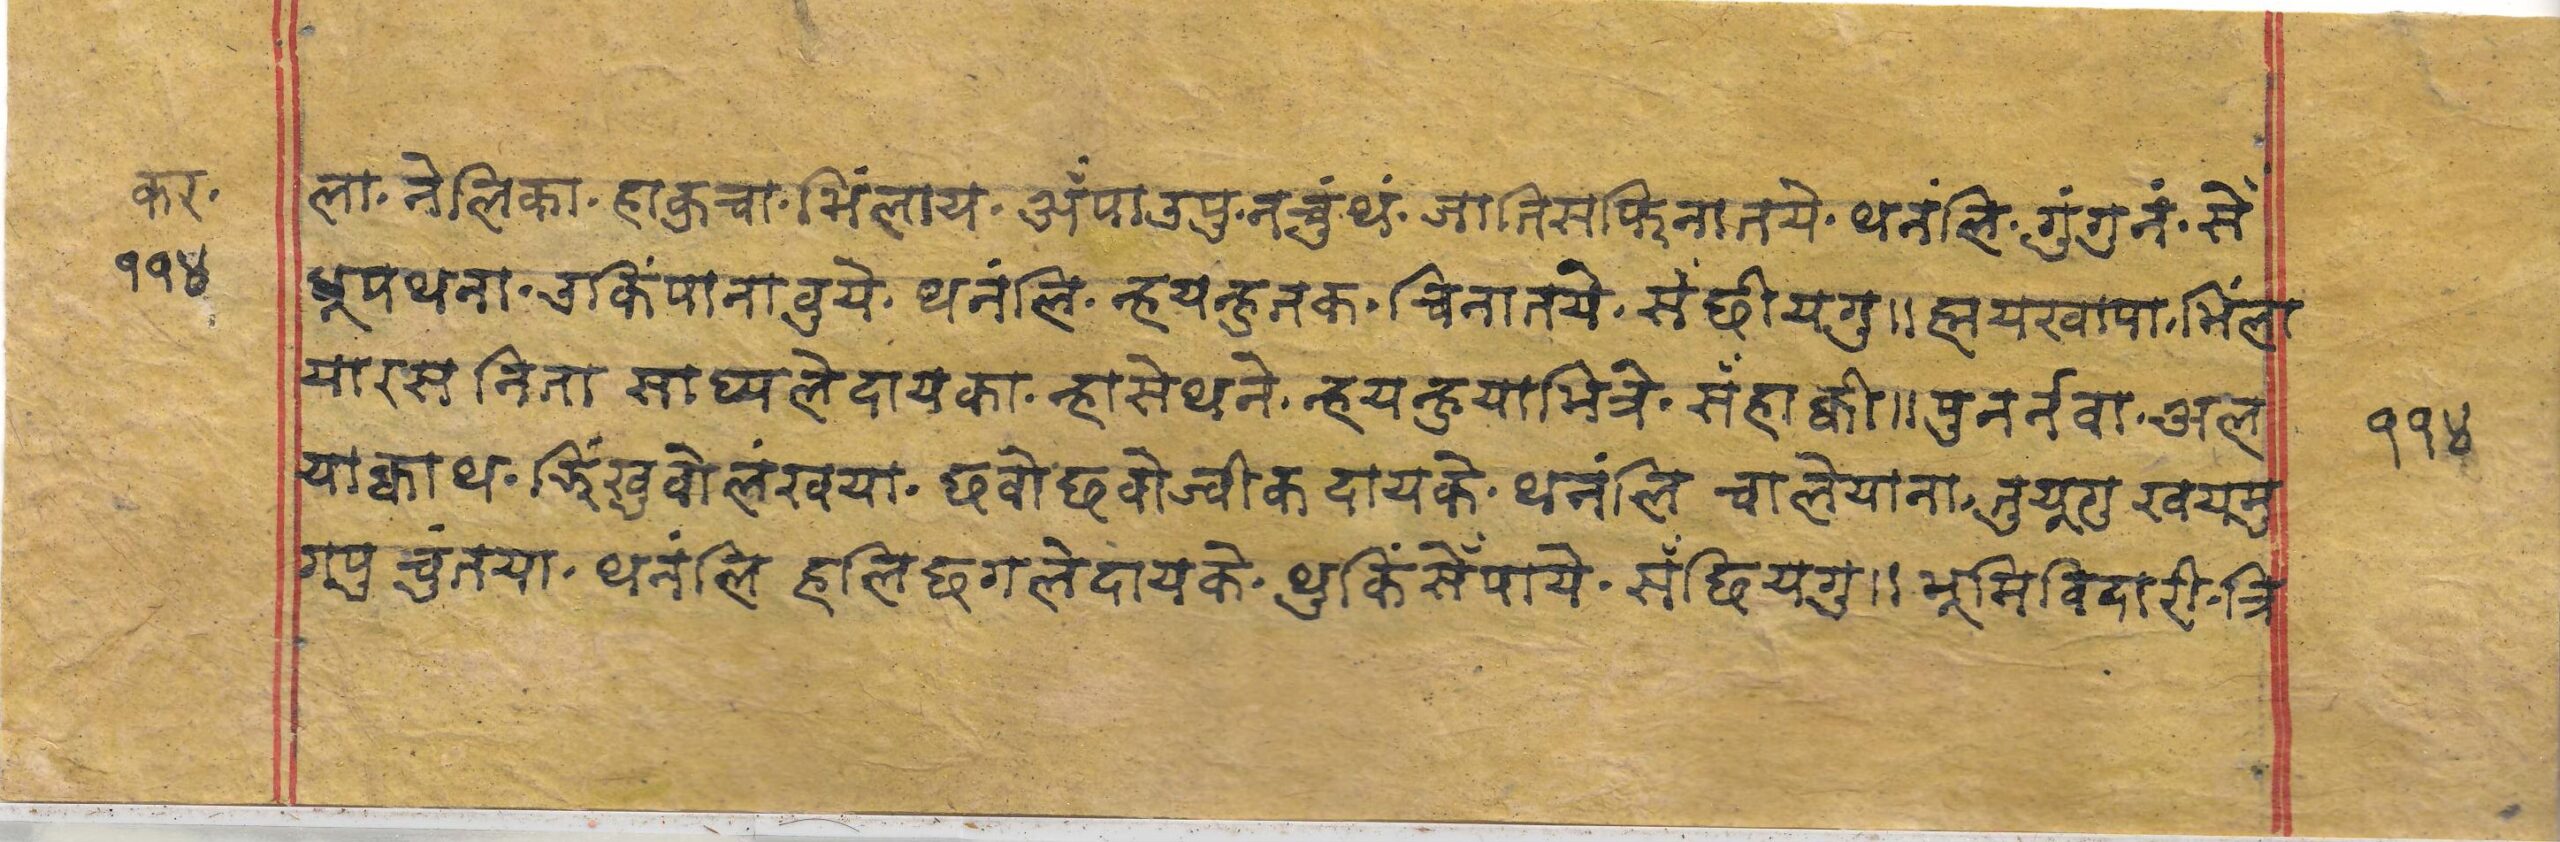 कर·
११४
ला· नेलिका· हाकुचा· भिंलाय· अँपाउपु· नचुंथं· जातिसफिनातये· थनंलि· गुंगुनं· सेँ
धूपथना· उकिंपानावुये· थनंलि· न्हयन्हुतक· चिनातये· सँछीयगु॥ ह्मयखापा· भिंला
यारस निता साघ्यलेदायका· न्हासेथने· न्हयन्हुयाभित्रे· सँहाक्वी॥ पुनर्नवा· अल
याक्वाथ· झिंखुवोलंखया· छवोछवोज्वीकदायके· थनंलि चालेयाना· तुयूगु खयमु
गपु चुंतया· थनंलि हलिछगलेदायके· थुकिंसेँपाये· सँछियगु॥ भूमिविदारी· त्रि
११४